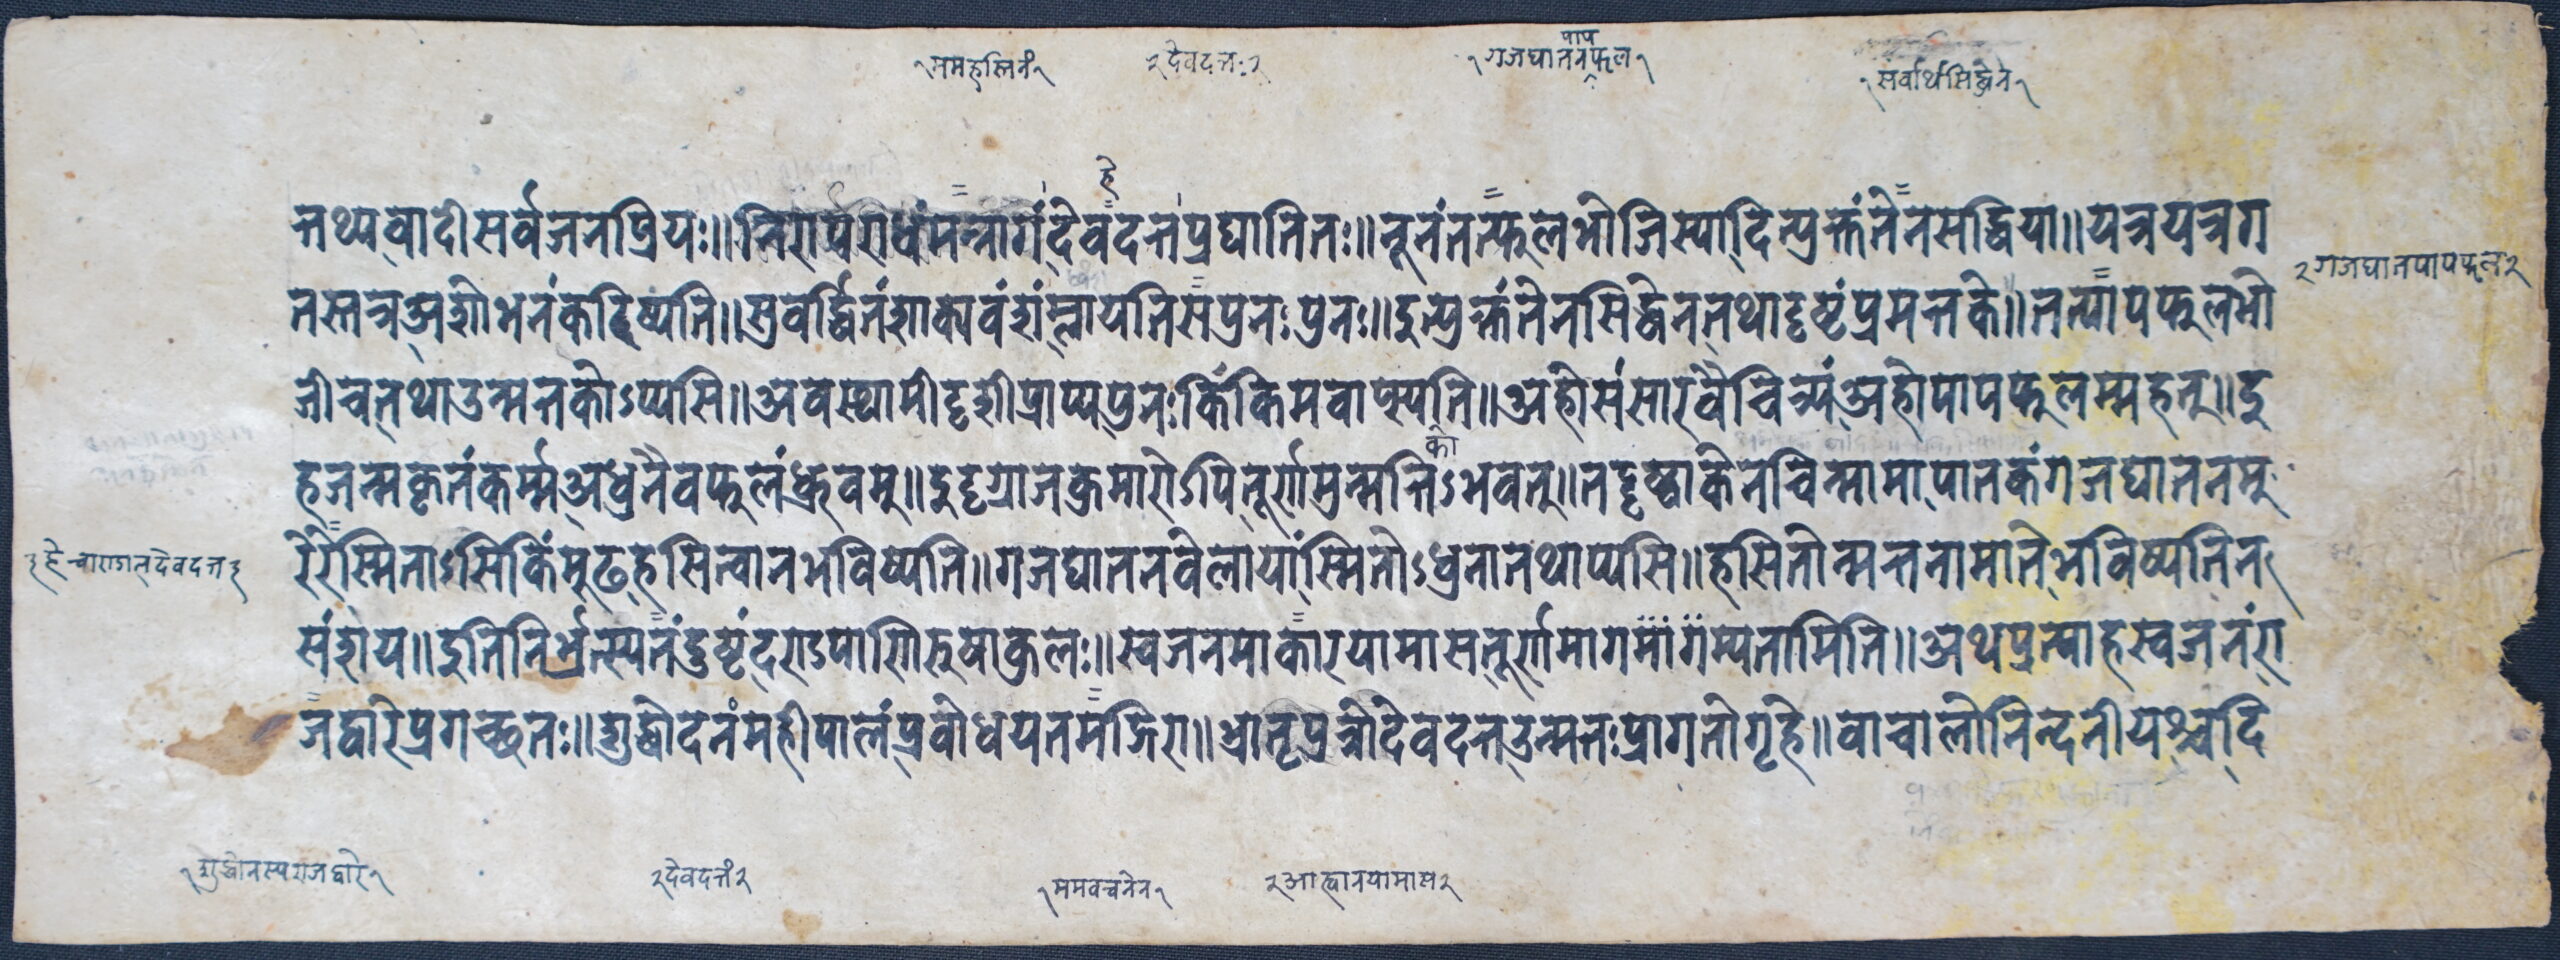 ममहस्तिनं
देवदत्तः
गजघातनपापफल
सर्वार्थसिद्धेन
हे
तथ्यवादी सर्वजनप्रियः॥ निरापराधं मन्नागं देवदत्त प्रघातितः॥ नूनं तत्फलभोजि स्यादित्युक्तं तेन सद्धिया॥ यत्र यत्र ग
गजघातपापफल
तस्तत्र अशोभनं करिष्यति॥ सुवर्द्धितं शाक्यवंशं म्लायति स पुनः पुनः॥ इत्युक्तं तेन सिद्धेन तथा दृष्टं प्रमत्तके॥ तत्पापफलभो
जी च तथा उन्मत्तकोऽप्यसि॥ अवस्थामीदृशीं प्राप्य पुनः किं किमवाप्स्यति॥ अहो संसारवैचित्र्यं अहो पापफलम्महत्॥ इ
को
हजन्मकृतं कर्म्म अधुनैव फलं ध्रुवम्॥ इदृग्राजकुमारोऽपि तूर्णमुन्मत्तिऽभवत्॥ तदृष्ट्वा केनचिन्मामा पातकं गजघातनम्
हे चाण्डाल देवदत्त
रेरे स्मिताऽसि किं मूढ हसित्वा न भविष्यति॥ गजघातनवेलायां स्मितोऽधुना तथाप्यसि॥ हसितोन्मत्तनामा ते भविष्यति न
संशय॥ इति निर्भर्त्स्य तं दुष्टं दण्डपाणी रुषाकुलः॥ स्वजनमाकारयामास तूर्णमागमां गम्यतामिति॥ अथ प्रत्याह स्वजनं रा
जद्वारे प्रगच्छतः॥ शुद्धोदनं महीपालं प्रबोधयत मद्गिरा॥ भ्रातृपुत्रो देवदत्त उन्मत्तः प्रागतो गृहे॥ वाचालो निन्दनीयश्च दि
शुद्धोनस्य राजद्वारे
देवदत्तं
ममवचनेन
आह्वानयामास